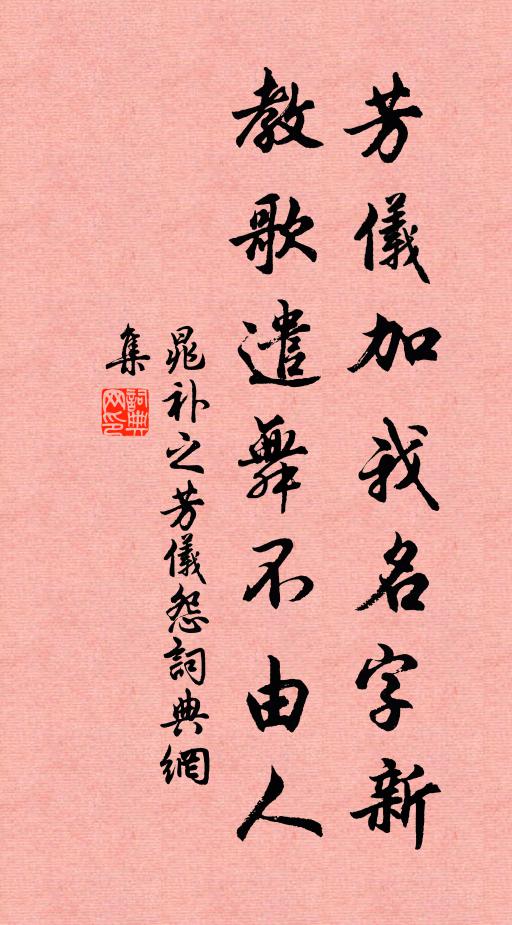 芳儀加我名字新
教歌遣舞不由人
晁补之芳儀怨詞典網
集
詞典
网印